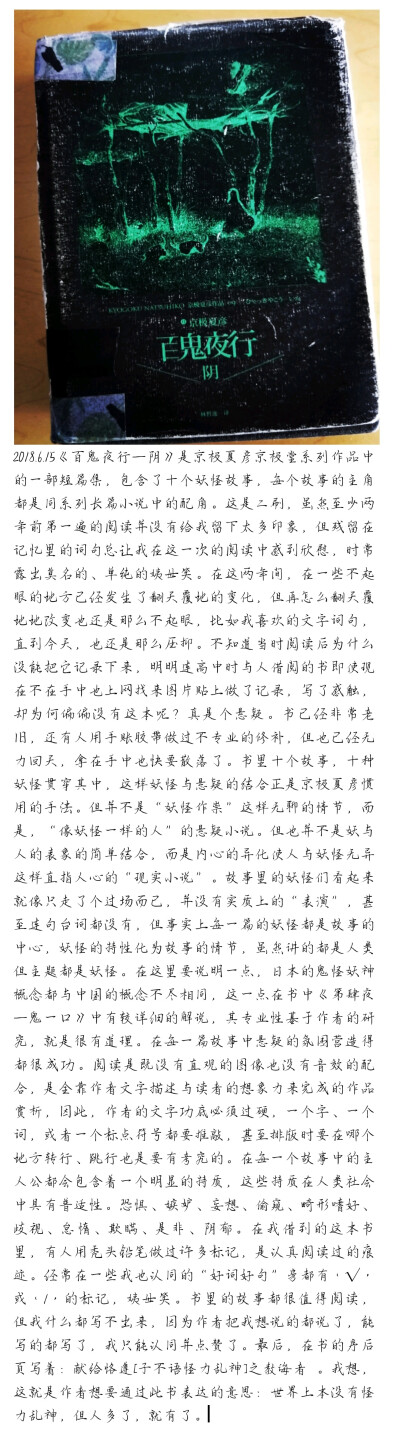 京极夏彦
百鬼夜行
阴
2018.6.15《百鬼夜行—阴》是京极夏彦京极堂系列作品中
的一部短篇集，包含了十个妖怪故事，每个故事的主角
都是同系列长篇小说中的配角。这是二刷，虽然至少两
年前第一遍的阅读并没有给我留下太多印象，但残留在
记忆里的词句总让我在这一次的阅读中感到欣慰，时常
露出莫名的、单纯的姨母笑。在这两年间，在一些不起
眼的地方已经发生了翻天覆地的变化，但再怎么翻天覆
地地改变也还是那么不起眼，比如我喜欢的文字词句，
直到今天，也还是那么压抑。不知道当时阅读后为什么
没能把它记录下来，明明连高中时与人借阅的书即使现
在不在手中也上网找来图片贴上做了记录，写了感触，
却为何偏偏没有这本呢？真是个悬疑。书已经非常老
旧，还有人用手账胶带做过不专业的修补，但也已经无
力回天，拿在手中也快要散落了。书里十个故事，十种
妖怪贯穿其中，这样妖怪与悬疑的结合正是京极夏彦惯
用的手法。但并不是“妖怪作祟”这样无聊的情节，而
是，“像妖怪一样的人”的悬疑小说。但也并不是妖与
人的表象的简单结合，而是内心的异化使人与妖怪无异
这样直指人心的“现实小说”。故事里的妖怪们看起来
就像只走了个过场而已，并没有实质上的“表演”，甚
至连句台词都没有，但事实上每一篇的妖怪都是故事的
中心，妖怪的特性化为故事的情节，虽然讲的都是人类
但主题都是妖怪。在这里要说明一点，日本的鬼怪妖神
概念都与中国的概念不尽相同，这一点在书中《第肆夜
—鬼一口》中有较详细的解说，其专业性基于作者的研
究，就是很有道理。在每一篇故事中悬疑的氛围营造得
都很成功。阅读是既没有直观的图像也没有音效的配
合，是全靠作者文字描述与读者的想象力来完成的作品
赏析，因此，作者的文字功底必须过硬，一个字、一个
词，或者一个标点符号都要推敲，甚至排版时要在哪个
地方转行、跳行也是要有考究的。在每一个故事中的主
人公都会包含着一个明显的特质，这些特质在人类社会
中具有普适性。恐惧、嫉妒、妄想、偷窥、畸形嗜好、
歧视、怠惰、欺瞒、是非、阴郁。在我借到的这本书
里，有人用秃头铅笔做过许多标记，是认真阅读过的痕
迹。经常在一些我也认同的“好词好句”旁都有·√·
或·/·的标记，姨母笑。书里的故事都很值得阅读，
但我什么都写不出来，因为作者把我想说的都说了，能
写的都写了，我只能认同并点赞了。最后，在书的序后
页写着：献给恪遵[子不语怪力乱神]之教诲者 。我想，
这就是作者想要通过此书表达的意思：世界上本没有怪
力乱神，但人多了，就有了。